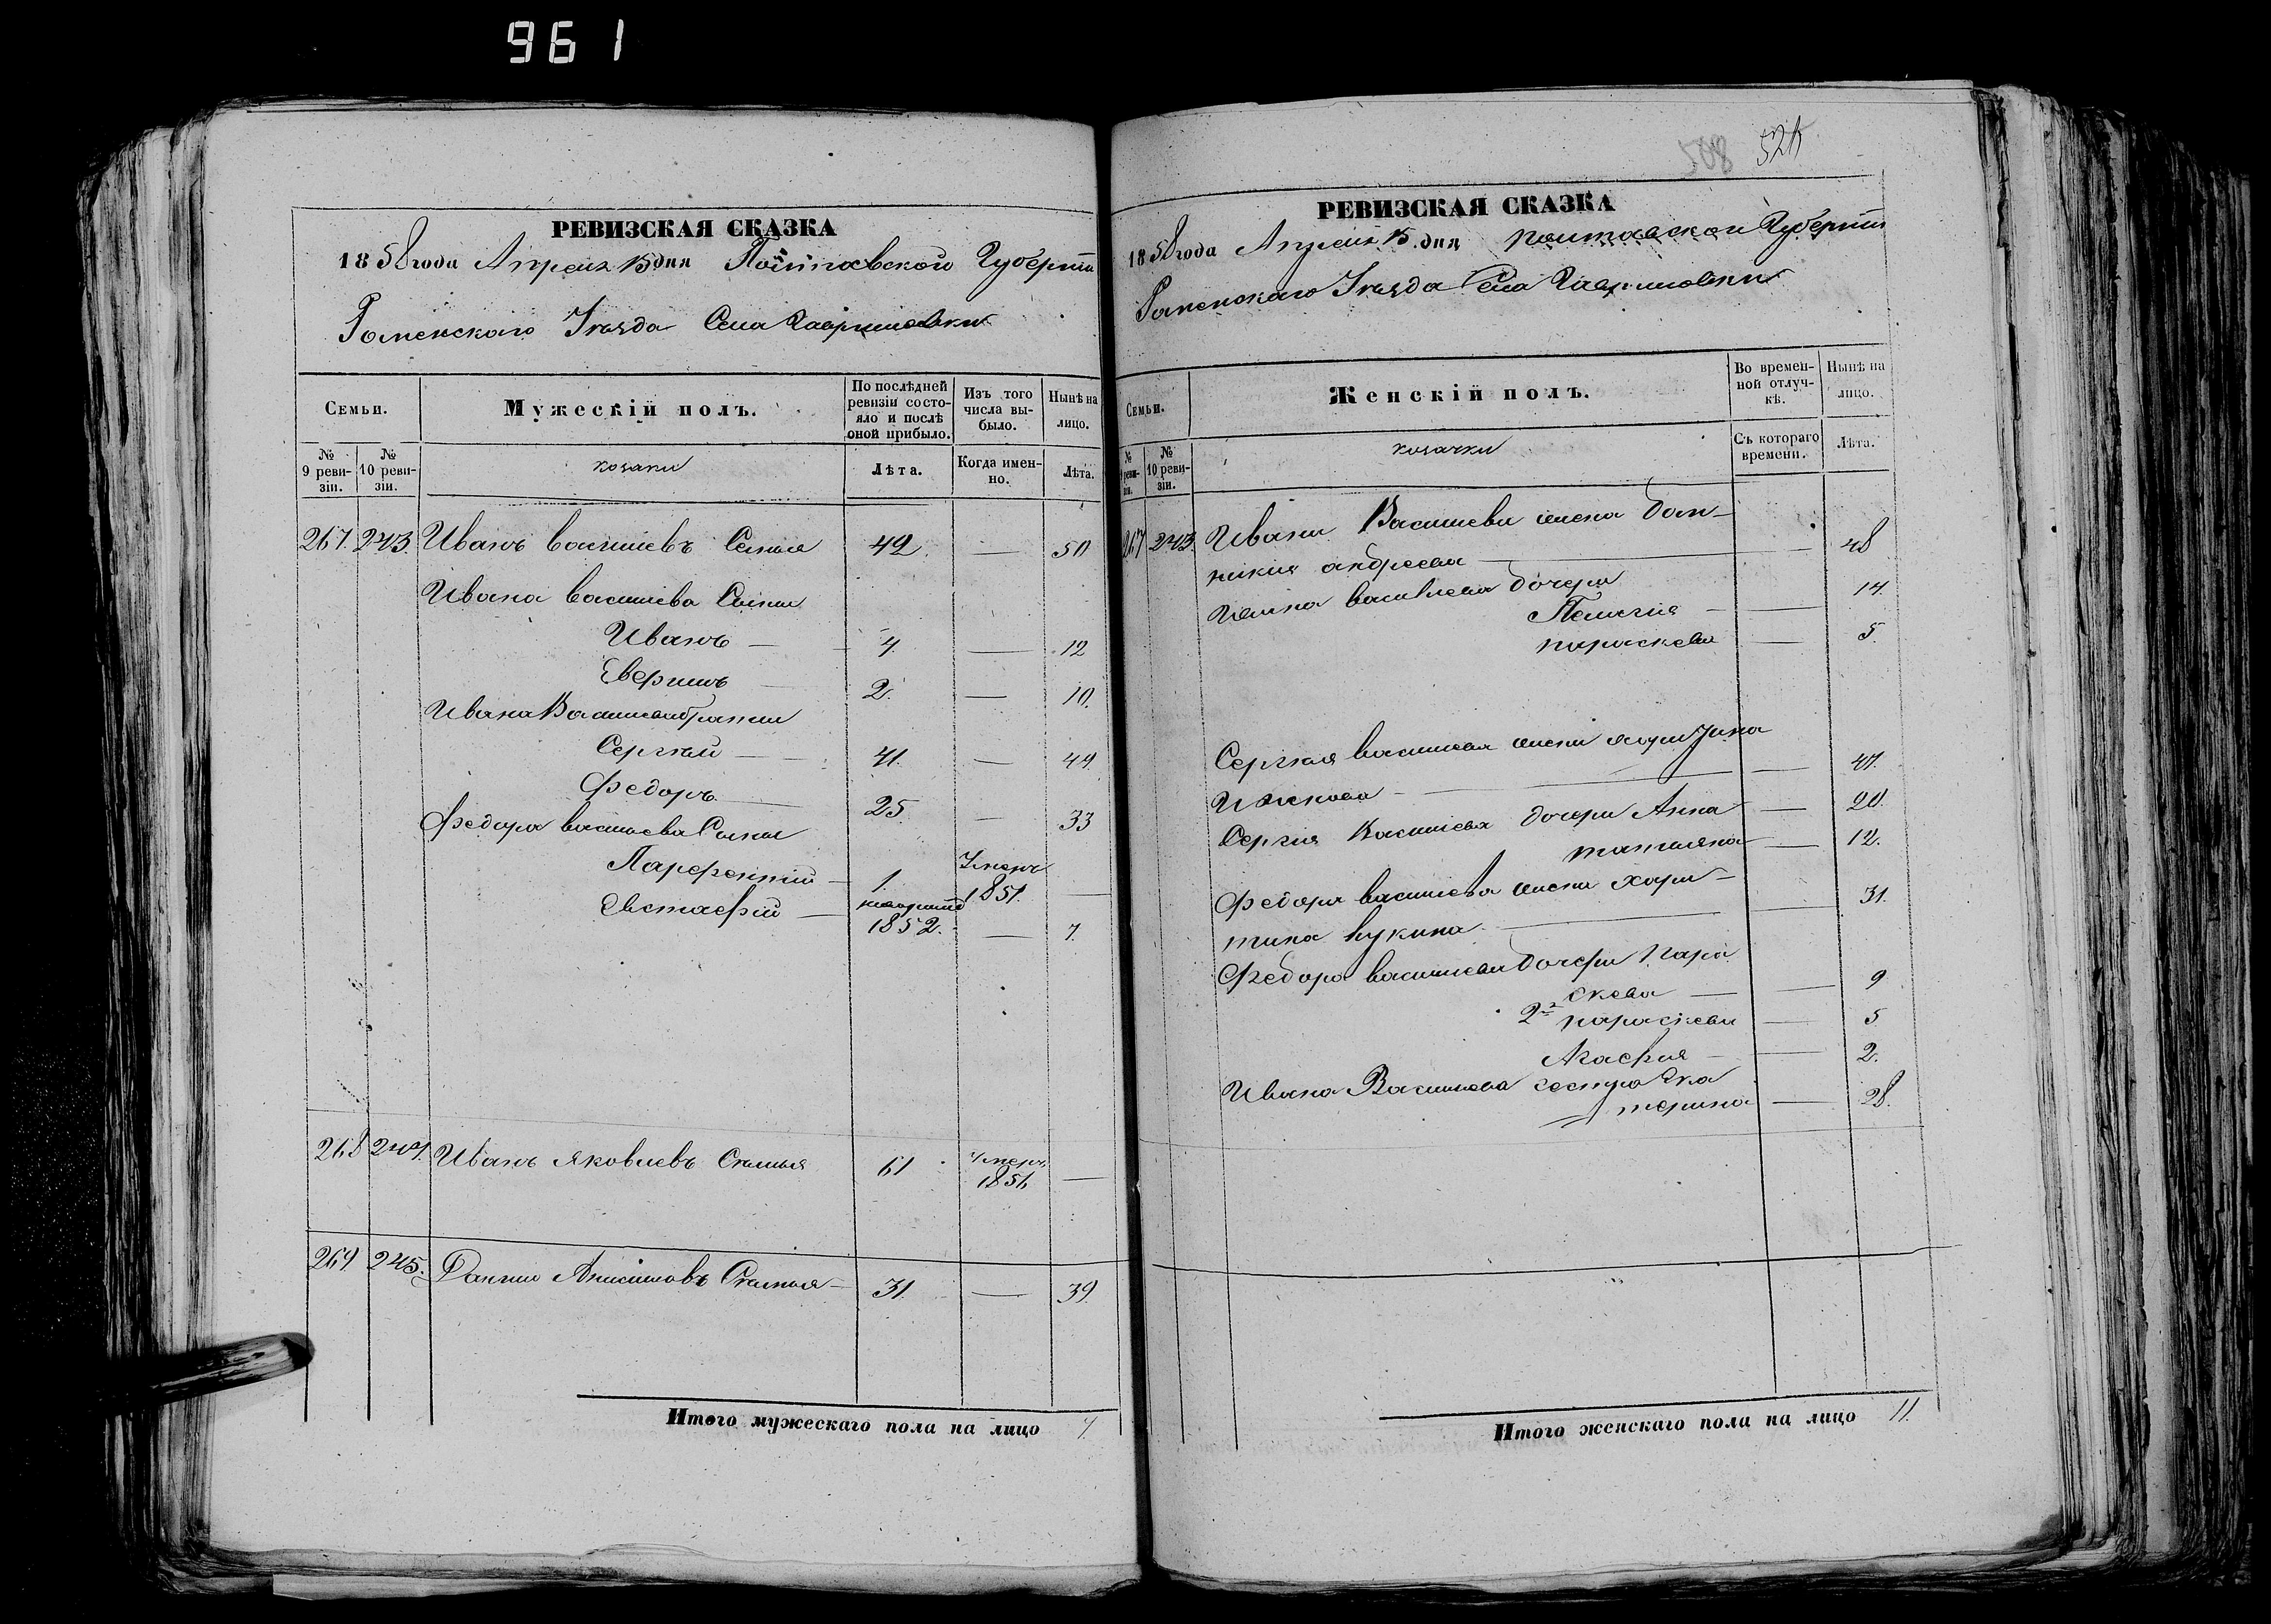 961
508 524
РЕВИЗСКАЯ СКАЗКА
1858 года Апреля 15 дня Полтавской Губерніи
Роменскаго Уезда Села Гаврилловки
Семьи.
Мужескій полъ.
По послѣдней ревизіи состояло и послѣ оной прибыло.
Изъ того числа выбыло.
Нынѣ на лицо.
№ 9 ревизіи.
№ 10 ревизіи.
козаки
Лѣта.
Когда именно.
Лѣта.
267. 243. Иванъ Василіевъ 42. — 50
Ивана Василіева Сыны
Иванъ — 4. — 12
2. — 10.
Ивана Василіева братья
Сергѣй — 41. — 49.
Федоръ — 25. — 33
Федора Василіева Сыны
Парфентій — 1. Умеръ 1851. —
Евстафій — новорожд 1852. — 7.
268 244. Иванъ Яковлевъ 61 Умеръ 1851 —
269 245. Данило Анисимовъ 31. — 39.
Итого мужескаго пола на лицо 7.
РЕВИЗСКАЯ СКАЗКА
1858 года Апреля 15 дня Полтавской Губерніи
Роменскаго Уезда Села Гаврилловки
Семьи.
Женскій полъ.
Во временной отлучкѣ.
Нынѣ на лицо.
№ ревизіи.
№ 10 ревизіи.
козачки
Съ котораго времени.
Лѣта.
267 243. Ивана Василіева жена Дом-
никия андреева — 48
Ивана Василіева дочери
Пелагия — 14.
параскева — 5.
Сергѣя Василіева жена
— 47.
Сергия Василіева дочери Анна — 20.
татияна — 12.
Федора Василіева жена хари-
тина Лукина — 31.
Федора Василіева дочери Пара
скева — 9
2я параскева — 5
Агафия — 2.
Ивана Василіева сестра Ека
терина — 28.
Итого женскаго пола на лицо 11.